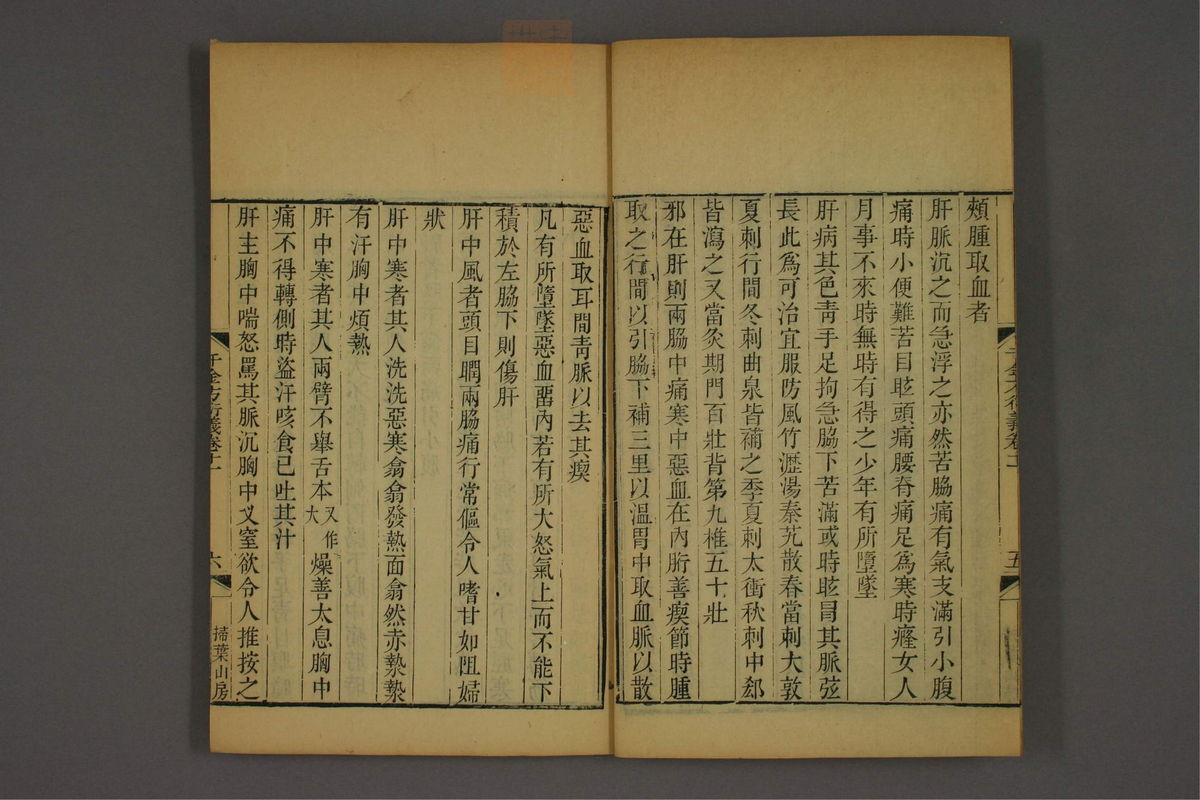 頰腫取血者
肝脈沉之而急浮之亦然苦脇痛有氣支滿引小腹
痛時小便難苦目眩頭痛腰脊痛足爲寒時癃女人
月事不來時無時有得之少年有所墮墜
肝病其色靑手足拘急脇下苦滿或時眩冒其脈弦
長此爲可治宜服防風竹瀝湯秦艽散春當刺大敦
夏刺行間冬刺曲泉皆補之季夏刺太衝秋刺中郄
皆瀉之又當灸期門百壯背第九椎五十壯
邪在肝則兩脇中痛寒中惡血在內胻善瘈節時腫
取之行間以引脇下補三里以溫胃中取血脈以散
千金方衍義卷十一
五
惡血取耳間靑脈以去其瘈
凡有所墮墜惡血畱內若有所大怒氣上而不能下
積於左脇下則傷肝
肝中風者頭目瞤兩脇痛行常傴令人嗜甘如阻婦
狀
肝中寒者其人洗洗惡寒翕翕發熱面翕然赤漐漐
有汗胸中煩熱
肝中寒者其人兩臂不舉舌本又作大燥善太息胸中
痛不得轉側時盜汗咳食已吐其汁
肝主胸中喘怒罵其脈沉胸中又窒欲令人推按之
千金方衍義卷十一
六
掃葉山房